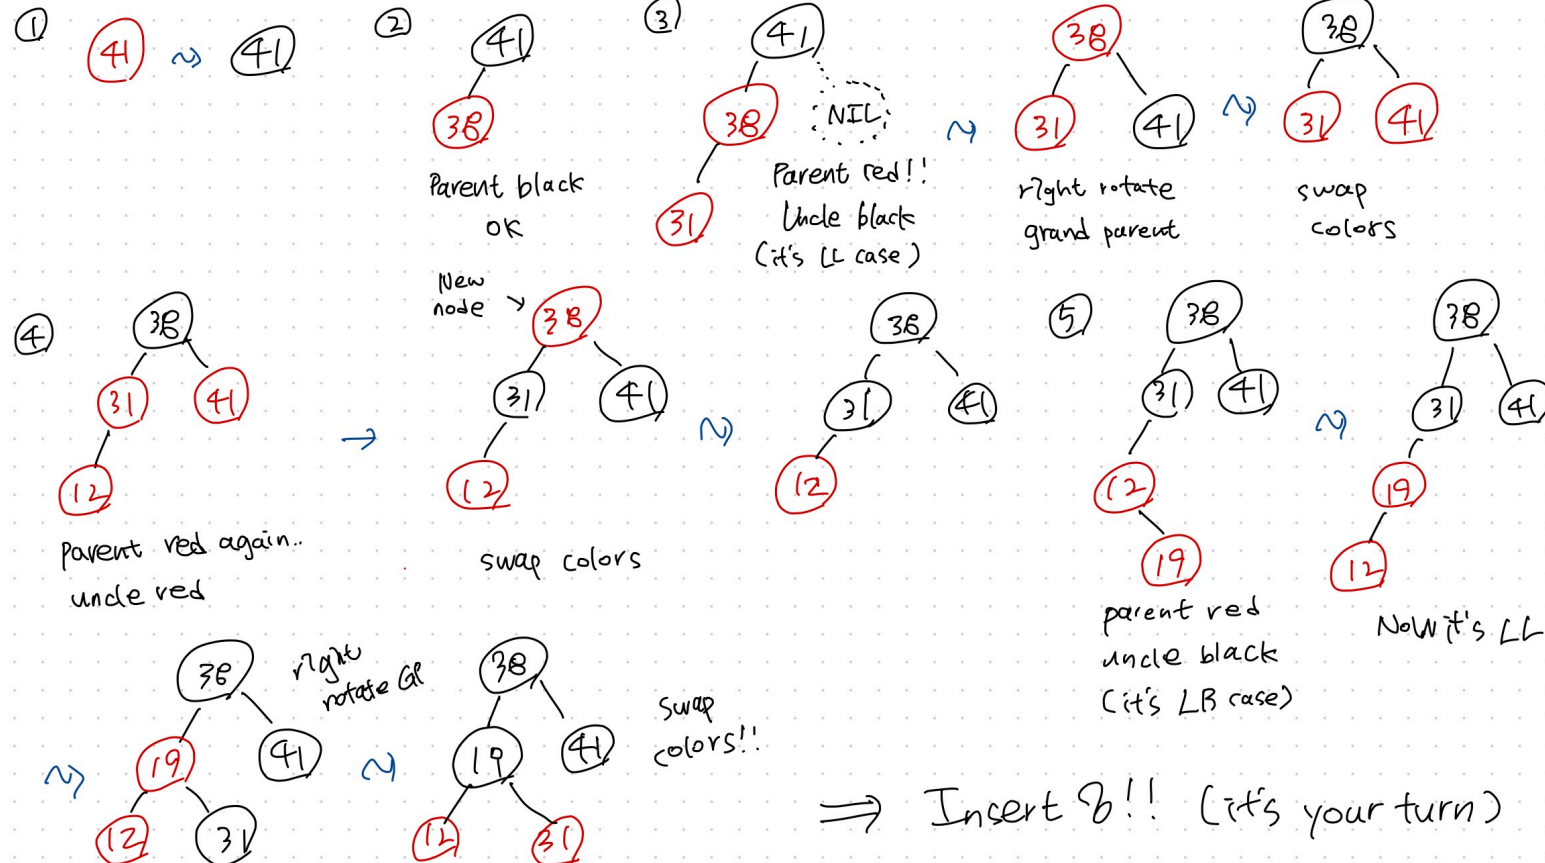 ①
41
41
②
41
38
Parent black
OK
③
41
38
NIL
31
Parent red!!
Uncle black
(it's LL case)
38
31
41
right rotate
grand parent
38
31
41
swap
colors
④
38
31
41
12
parent red again..
uncle red
New
node
38
31
41
12
swap colors
38
31
41
12
⑤
38
31
41
12
19
parent red
uncle black
(it's LR case)
38
31
41
19
12
Now it's LL
38
19
41
12
31
right
rotate GP
38
19
41
12
31
swap
colors!!
⇒ Insert 8!! (it's your turn)